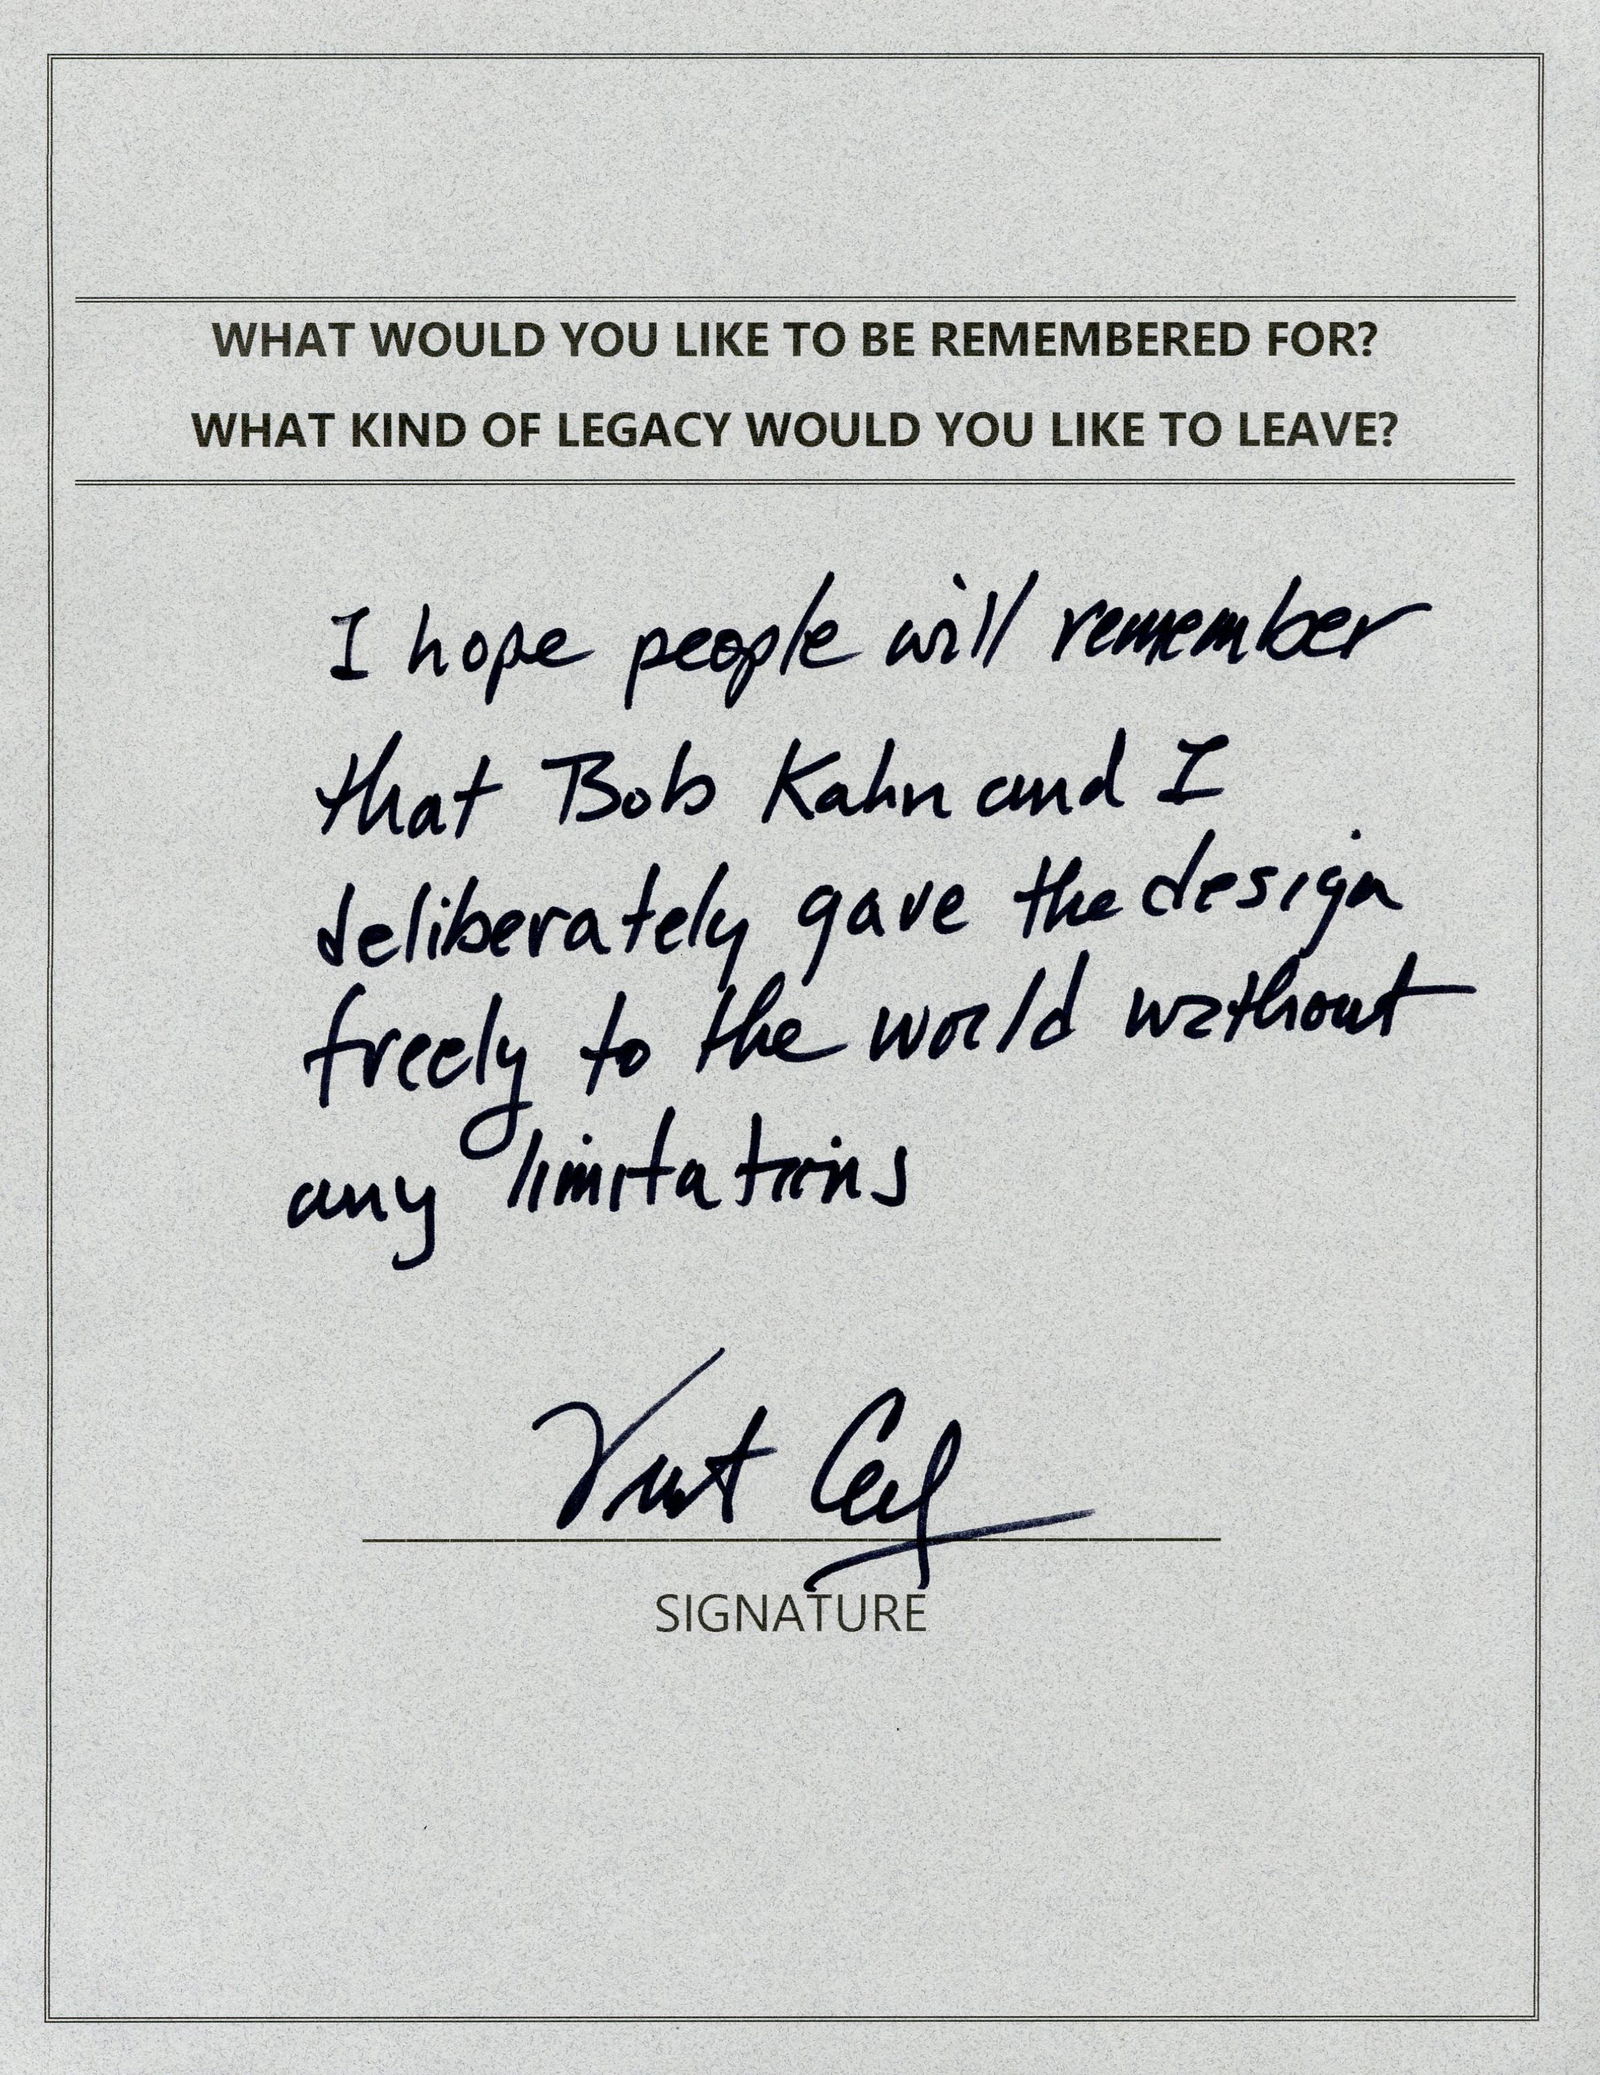 WHAT WOULD YOU LIKE TO BE REMEMBERED FOR?
WHAT KIND OF LEGACY WOULD YOU LIKE TO LEAVE?
I hope people will remember
that Bob Kahn and I
deliberately gave the design
freely to the world without
any limitations
Vint Cerf
SIGNATURE